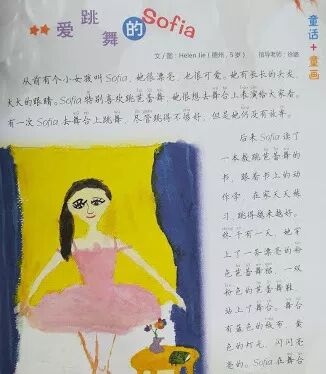 爱跳舞的Sofia
童话+童画
文/图：Helen lie（德州，5岁） 指导老师：徐璐
从前有个小女孩叫 Sofia，她很漂亮，也很可爱。她有长长的头发，
大大的眼睛。Sofia 特别喜欢跳芭蕾舞，她很想去舞台上表演给大家看。
有一次 Sofia 去舞台上跳舞，尽管跳得不够好，但是她仍没有放弃。
后来 Sofia 读了
一本教跳芭蕾舞的
书，跟着书上的动
作学，在家天天练
习，跳得越来越好。
终于有一天，她穿
上了一条漂亮的粉
色芭蕾舞裙，一双
粉色的芭蕾舞鞋，
站上了舞台。舞台
有蓝色的绒布，黄
色的灯光，闪闪亮
亮的。Sofia 在舞台